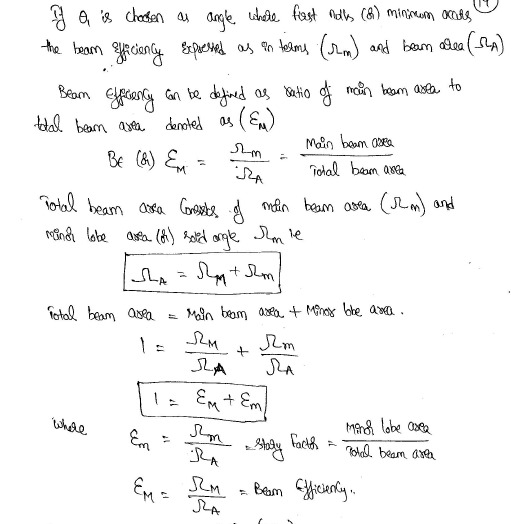 14
If θ₁ is chosen as angle where first nulls (or) minimum occurs
the beam efficiency expressed as in terms (Ωm) and beam area (ΩA)
Beam efficiency can be defined as ratio of main beam area to
total beam area denoted as (εM)
BE (or) εM = Ωm / ΩA = Main beam area / Total beam area
Total beam area Consists of main beam area (Ωm) and
minor lobe area (or) solid angle Ωm ie
ΩA = ΩM + Ωm
Total beam area = Main beam area + Minor lobe area.
1 = ΩM / ΩA + Ωm / ΩA
1 = εM + εm
where εm = Ωm / ΩA = stray factor = Minor lobe area / Total beam area
εM = ΩM / ΩA = Beam Efficiency.